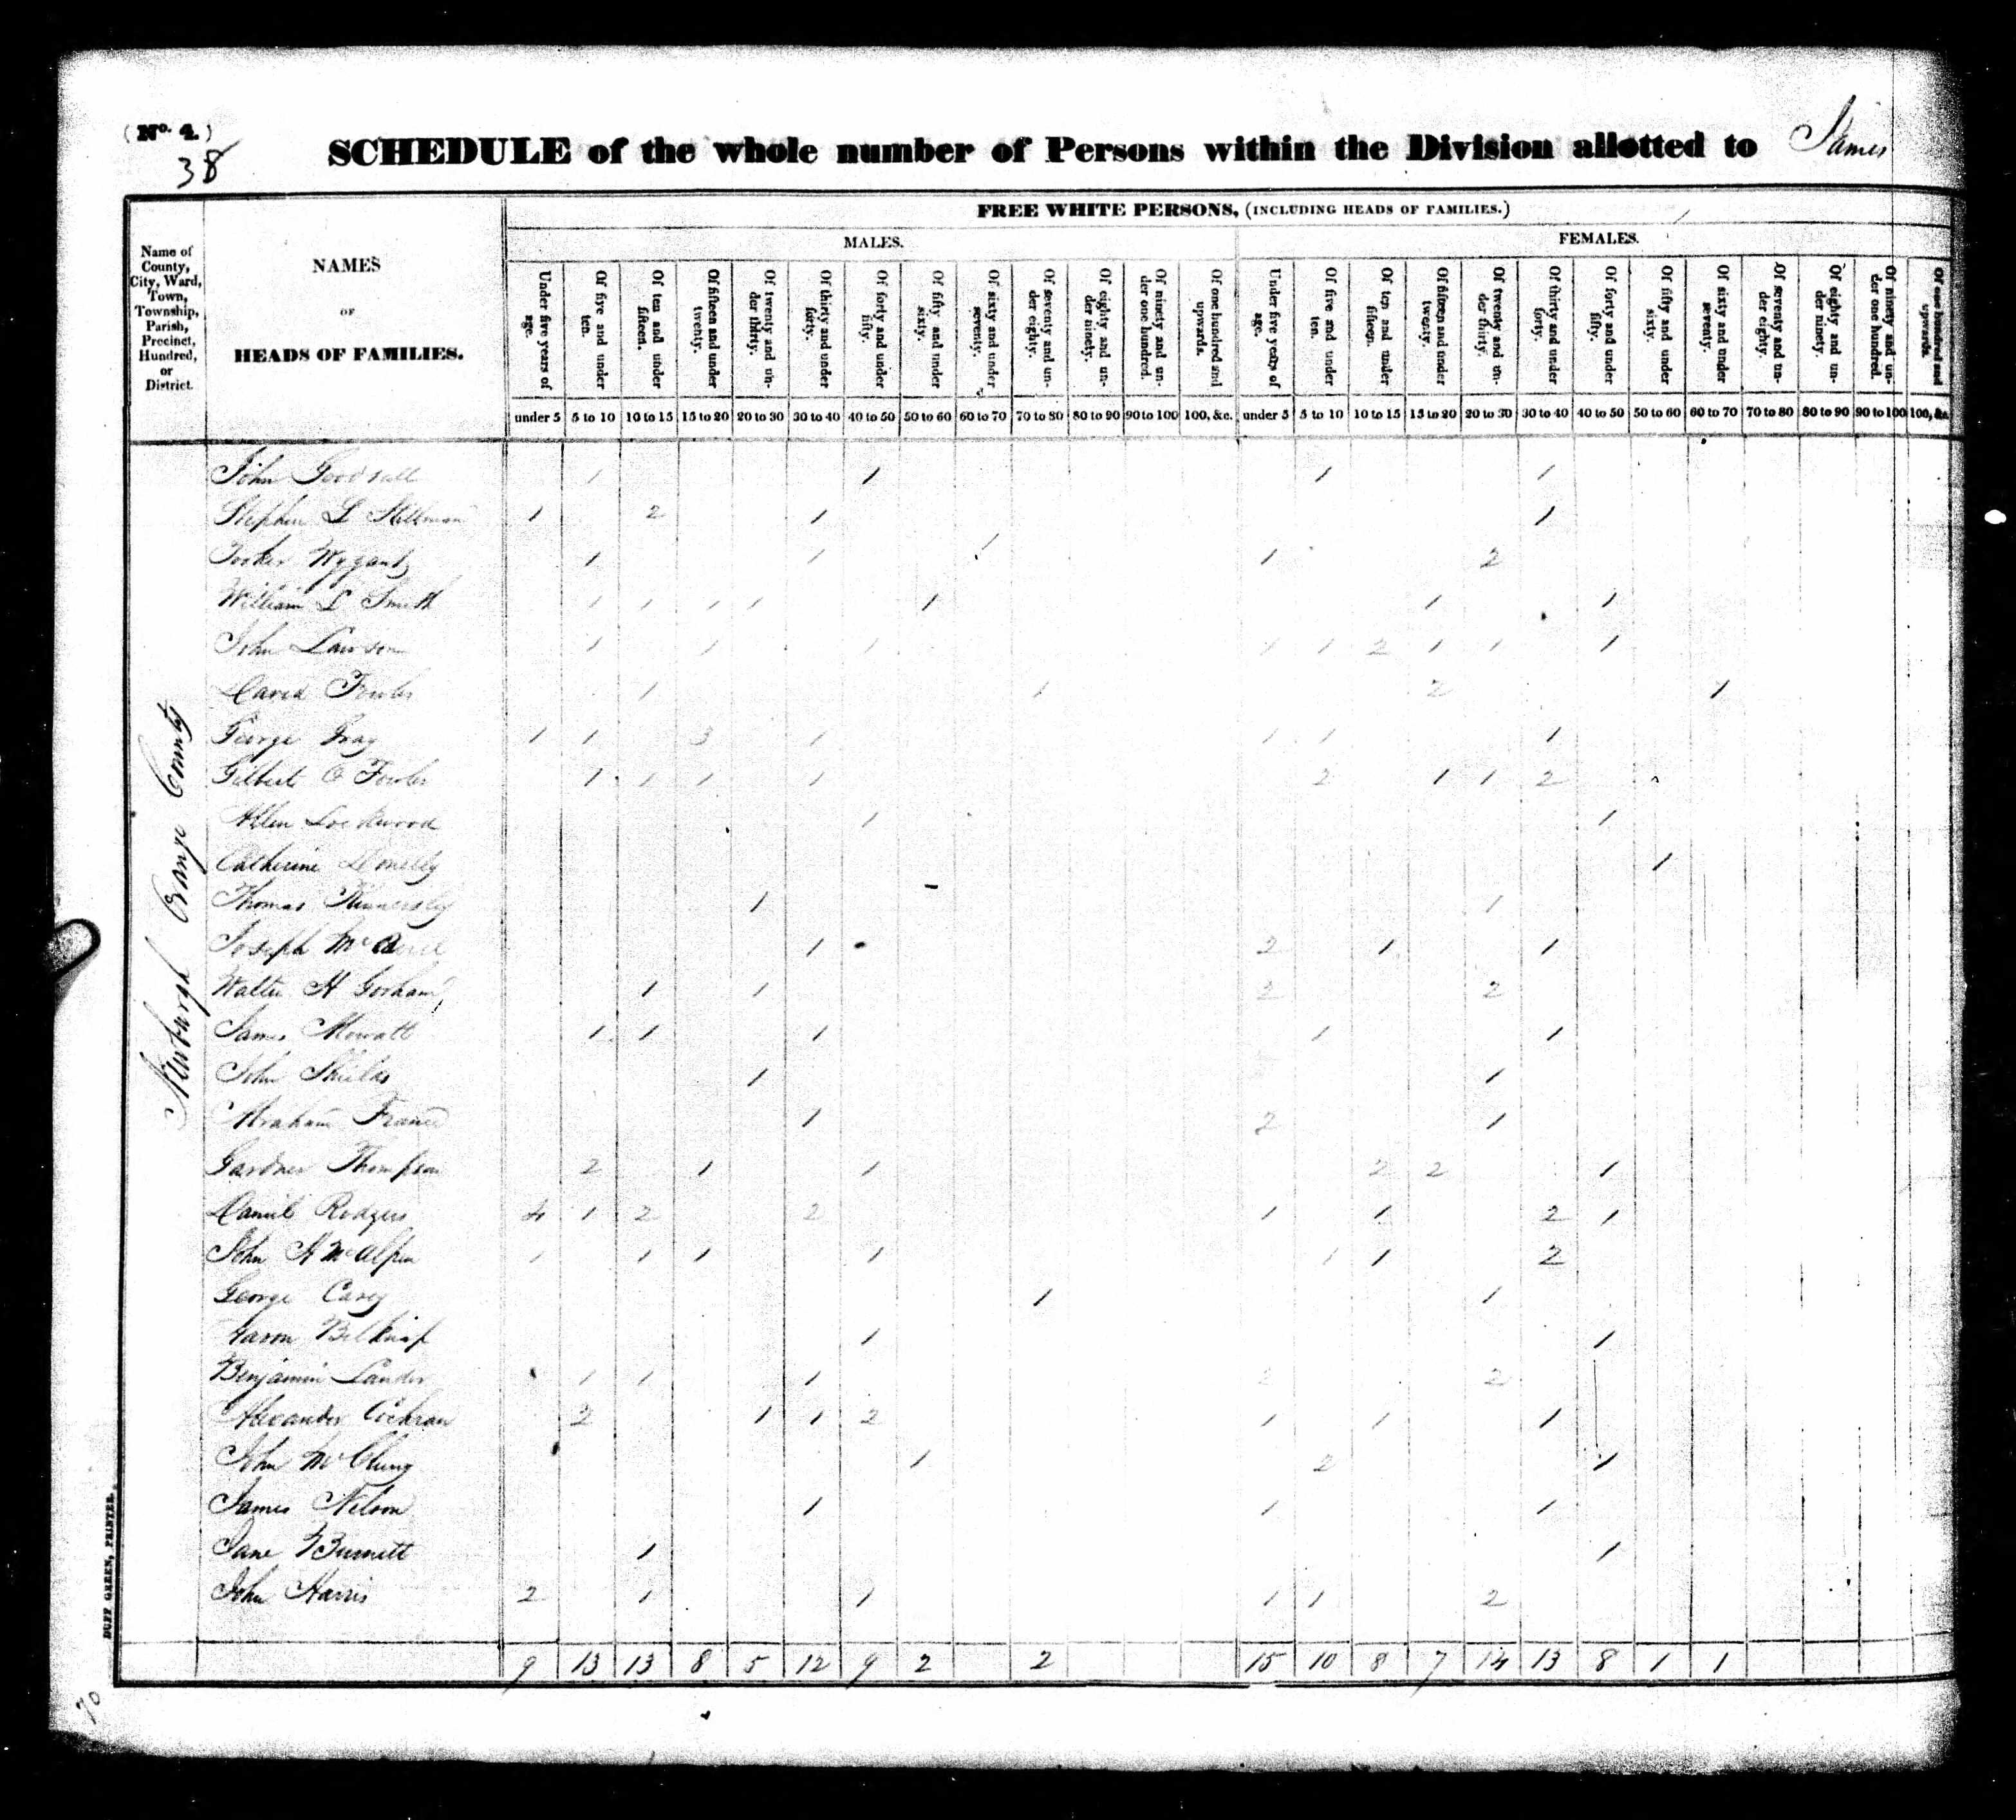 (No. 4.)
38
SCHEDULE of the whole number of Persons within the Division allotted to James
FREE WHITE PERSONS, (INCLUDING HEADS OF FAMILIES.)
MALES. FEMALES.
Name of County, City, Ward, Town, Township, Parish, Precinct, Hundred, or District.
NAMES
OF
HEADS OF FAMILIES.
Under five years of age. Of five and under ten. Of ten and under fifteen. Of fifteen and under twenty. Of twenty and under thirty. Of thirty and under forty. Of forty and under fifty. Of fifty and under sixty. Of sixty and under seventy. Of seventy and under eighty. Of eighty and under ninety. Of ninety and under one hundred. Of one hundred and upwards. Under five years of age. Of five and under ten. Of ten and under fifteen. Of fifteen and under twenty. Of twenty and under thirty. Of thirty and under forty. Of forty and under fifty. Of fifty and under sixty. Of sixty and under seventy. Of seventy and under eighty. Of eighty and under ninety. Of ninety and under one hundred. Of one hundred and upwards.
under 5 5 to 10 10 to 15 15 to 20 20 to 30 30 to 40 40 to 50 50 to 60 60 to 70 70 to 80 80 to 90 90 to 100 100, &c. under 5 5 to 10 10 to 15 15 to 20 20 to 30 30 to 40 40 to 50 50 to 60 60 to 70 70 to 80 80 to 90 90 to 100 100, &c.
Newburgh Orange County
John 1 1 1 1
Stephen L Stillman 1 2 1 1
Wygant 1 1 1 1 2
William L Smith 1 1 1 1 1 1 1
John Lawson 1 1 1 1 1 2 1 1 1
David Fowler 1 1 2 1
George Gray 1 1 3 1 1 1 1
Gilbert O Fowler 1 1 1 1 2 1 1 2
Allen Lockwood 1 1
Catherine Donelly 1
Thomas Kinnersley 1 1
Joseph 1 2 1 1
Walter H Gorham 1 1 2 2
James Mowatt 1 1 1 1 1
John Shields 1 1
Abraham 1 2 1
Gardner Thompson 2 1 1 2 2 1
Daniel Rodgers 4 1 2 2 1 1 2 1
John H McAlpin 1 1 1 1 1 1 2
George Casey 1 1
Aaron Belknap 1 1
Benjamin Lander 1 1 1 2 2
Alexander Cochran 2 1 1 2 1 1 1
John McClung 1 2 1
James Nelson 1 1 1
Jane Burnett 1 1
John Harris 2 1 1 1 1 2
9 13 13 8 5 12 9 2 2 15 10 8 7 14 13 8 1 1
DUFF GREEN, PRINTER.
70